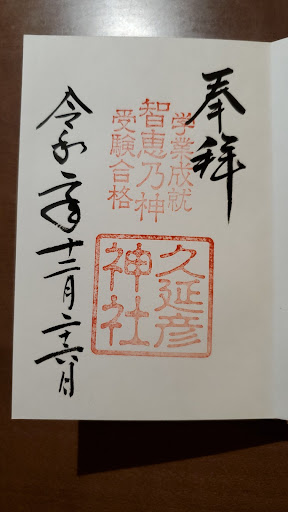 奉拝
学業成就
智恵乃神
受験合格
久延彦
神社
令和二年十二月二十六日